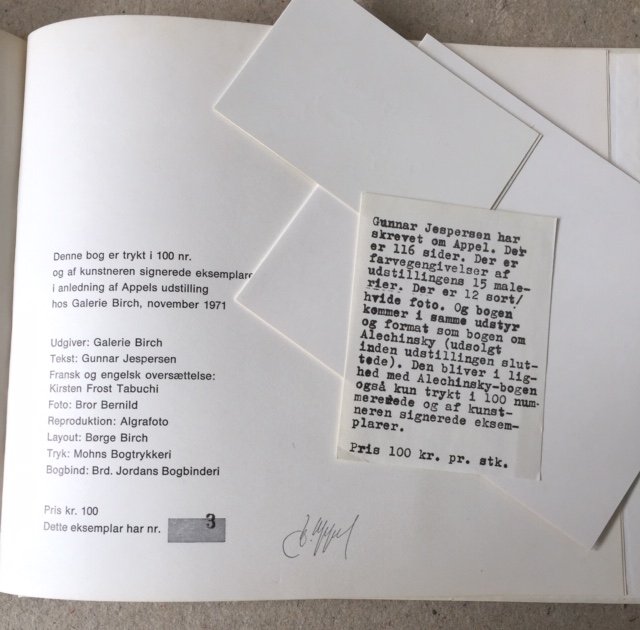 Denne bog er trykt i 100 nr.
og af kunstneren signerede eksemplare
i anledning af Appels udstilling
hos Galerie Birch, november 1971
Udgiver: Galerie Birch
Tekst: Gunnar Jespersen
Fransk og engelsk oversættelse:
Kirsten Frost Tabuchi
Foto: Bror Bernild
Reproduktion: Algrafoto
Layout: Børge Birch
Tryk: Mohns Bogtrykkeri
Bogbind: Brd. Jordans Bogbinderi
Pris kr. 100
Dette eksemplar har nr. 3
Appel
Gunnar Jespersen har
skrevet om Appel. Der
er 116 sider. Der er
farvegengivelser af
udstillingens 15 male-
rier. Der er 12 sort/
hvide foto. Og bogen
kommer i samme udstyr
og format som bogen om
Alechinsky (udsolgt
inden udstillingen slut-
tede). Den bliver i lig-
hed med Alechinsky-bogen
også kun trykt i 100 num-
mererede og af kunst-
neren signerede eksem-
plarer.
Pris 100 kr. pr. stk.